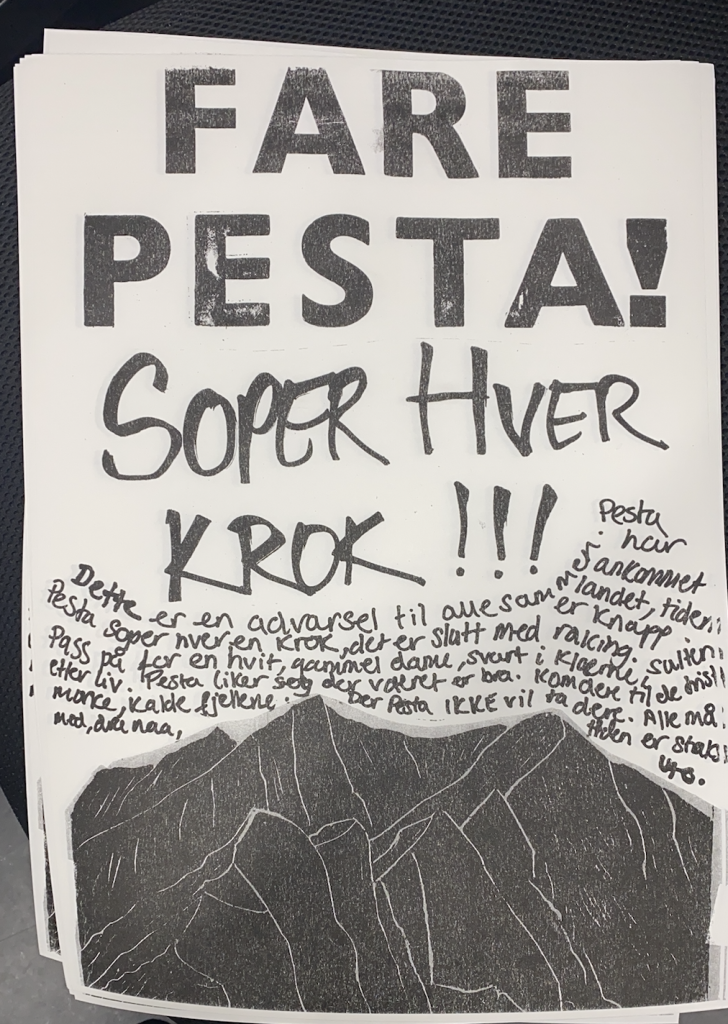 FARE
PESTA!
SOPER HVER
KROK !!!
Pesta
har
ankommet
Dette er en advarsel til alle sammen i landet, tiden
Pesta soper hver en krok, det er slutt med raking. er knapp
Pass på for en hvit, gammel dame, svart i klærne, sulten
etter liv. Pesta liker seg der været er bra. Kom dere til de
mørke, kalde fjellene. Der Pesta IKKE vil ta dere. Alle må
med, dra naa, tiden er straks
ute.